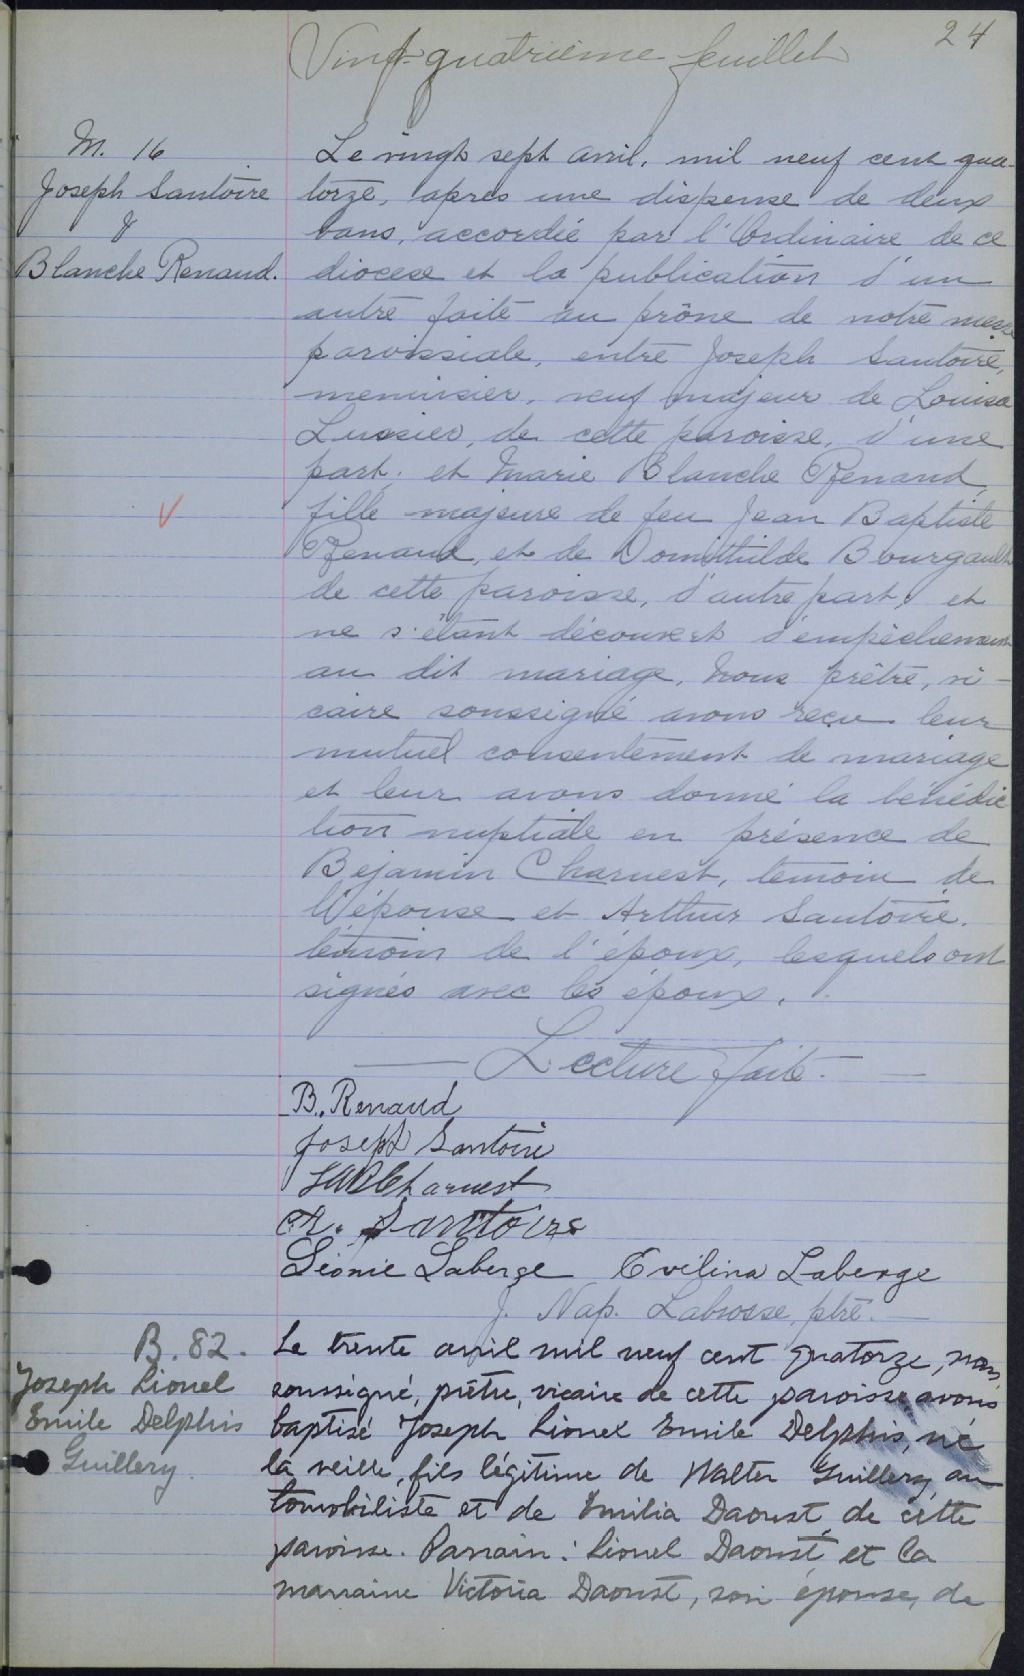 24
Vingt-quatrième feuillet
M. 16
Joseph Santoire
&
Blanche Renaud.
Le vingt sept avril, mil neuf cent qua-
torze, après une dispense de deux
bans, accordée par l'Ordinaire de ce
diocèse et la publication d'un
autre faite au prône de notre messe
paroissiale, entre Joseph Santoire,
menuisier, veuf majeur de Louisa
Lussier, de cette paroisse, d'une
part; et Marie Blanche Renaud,
fille majeure de feu Jean Baptiste
Renaud, et de Domithilde Bourgault
de cette paroisse, d'autre part; et
ne s'étant découvert d'empêchement
au dit mariage, Nous prêtre, vi-
caire soussigné avons reçu leur
mutuel consentement de mariage
et leur avons donné la bénédic
tion nuptiale en présence de
Bejamin Charnest, témoin de
l'épouse et Arthur Santoire.
témoin de l'époux, lesquels ont
signés avec les époux.
Lecture faite.
B. Renaud
Joseph Santoire
Charnest
A. Santoire
Léonie Laberge Evilina Laberge
J. Nap. Labrosse, ptre.
B. 82.
Joseph Lionel
Emile Delphis
Guillery
Le trente avril mil neuf cent quatorze, nous
soussigné, prêtre, vicaire de cette paroisse avons
baptisé Joseph Lionel Emile Delphis, né
la veille, fils légitime de Walter Guillery, au
tomobiliste et de Emilia Daoust, de cette
paroisse. Parrain: Lionel Daoust, et la
marraine Victoria Daoust, son épouse, de